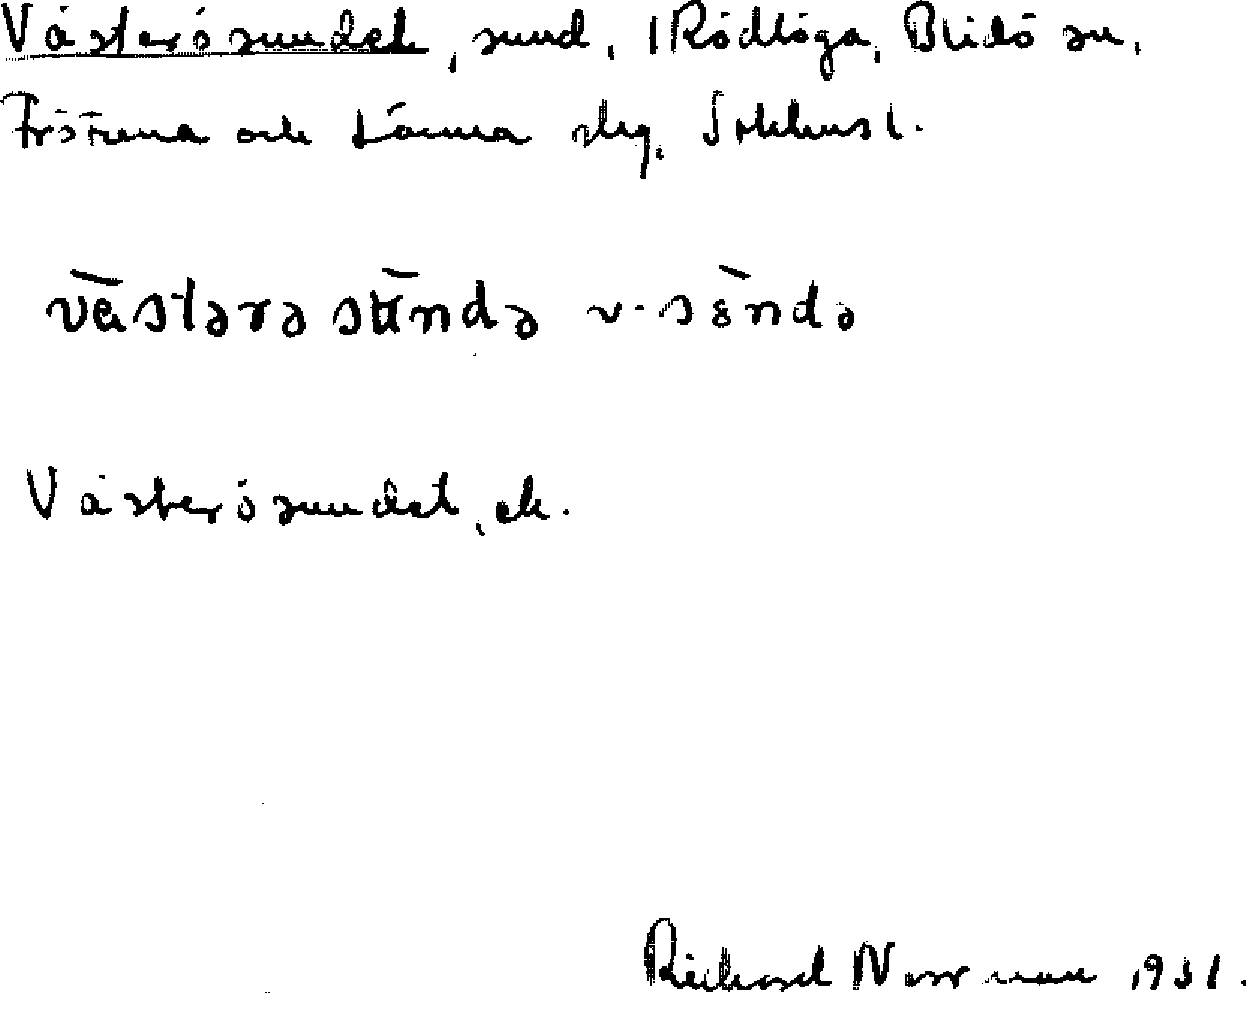 Västerösundet, sund, i Rödlöga, Blidö sn,
Frötuna och Länna skg, Stklms l.
västərə sundə v-søndə
Västerösundet, ek.
Richard Norrman 1931.